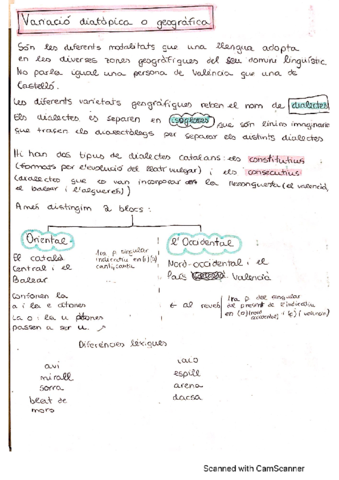 Variació diatòpica o geogràfica
Són les diferents modalitats que una llengua adopta
en les diverses zones geogràfiques del seu domini lingüístic
No parla igual una persona de València que una de
Castelló.
Les diferents varietats geogràfiques reben el nom de dialectes
Els dialectes es separen en isoglosses que són línies imaginàries
que tracen els dialectòlegs per separar els distints dialectes
Hi han dos tipus de dialectes catalans: els constitutius
(formats per l'evolució del llatí vulgar) i els consecutius
(dialectes que es van incorporar en la reconquesta (el valencià,
el balear i l'alguerès)
A més distingim 2 blocs:
Oriental
El català
central i el
Balear
1ra p singular
indicatiu en
Confonen la
a i la e àtones
La o i la u àtones
passen a ser u.
l'Occidental
Nord-occidental i el
País Valencià
← al revés
1ra p del singular
del present de l'indicatiu
en (o) (nord
occidental) i (e) (valencià)
Diferències lèxiques
avi
mirall
sorra
blat de
moro
iaco
espill
arena
dacsa
Scanned with CamScanner